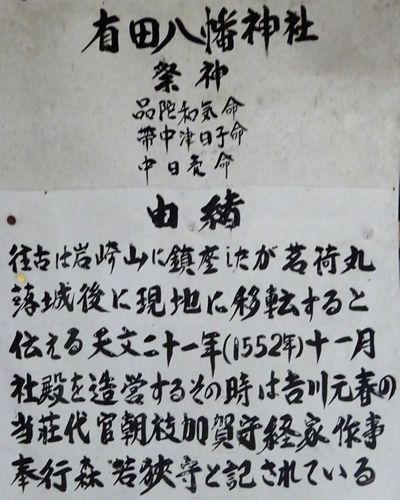 有田八幡神社
祭神
品陀和気命
帯中津日子命
中日売命
由緒
往古は岩崎山に鎮座したが茗荷丸
落城後に現地に移転すると
伝える天文二十一年(1552年)十一月
社殿を造営するその時は吉川元春の
当荘代官朝枝加賀守経家作事
奉行森若狭守と記されている